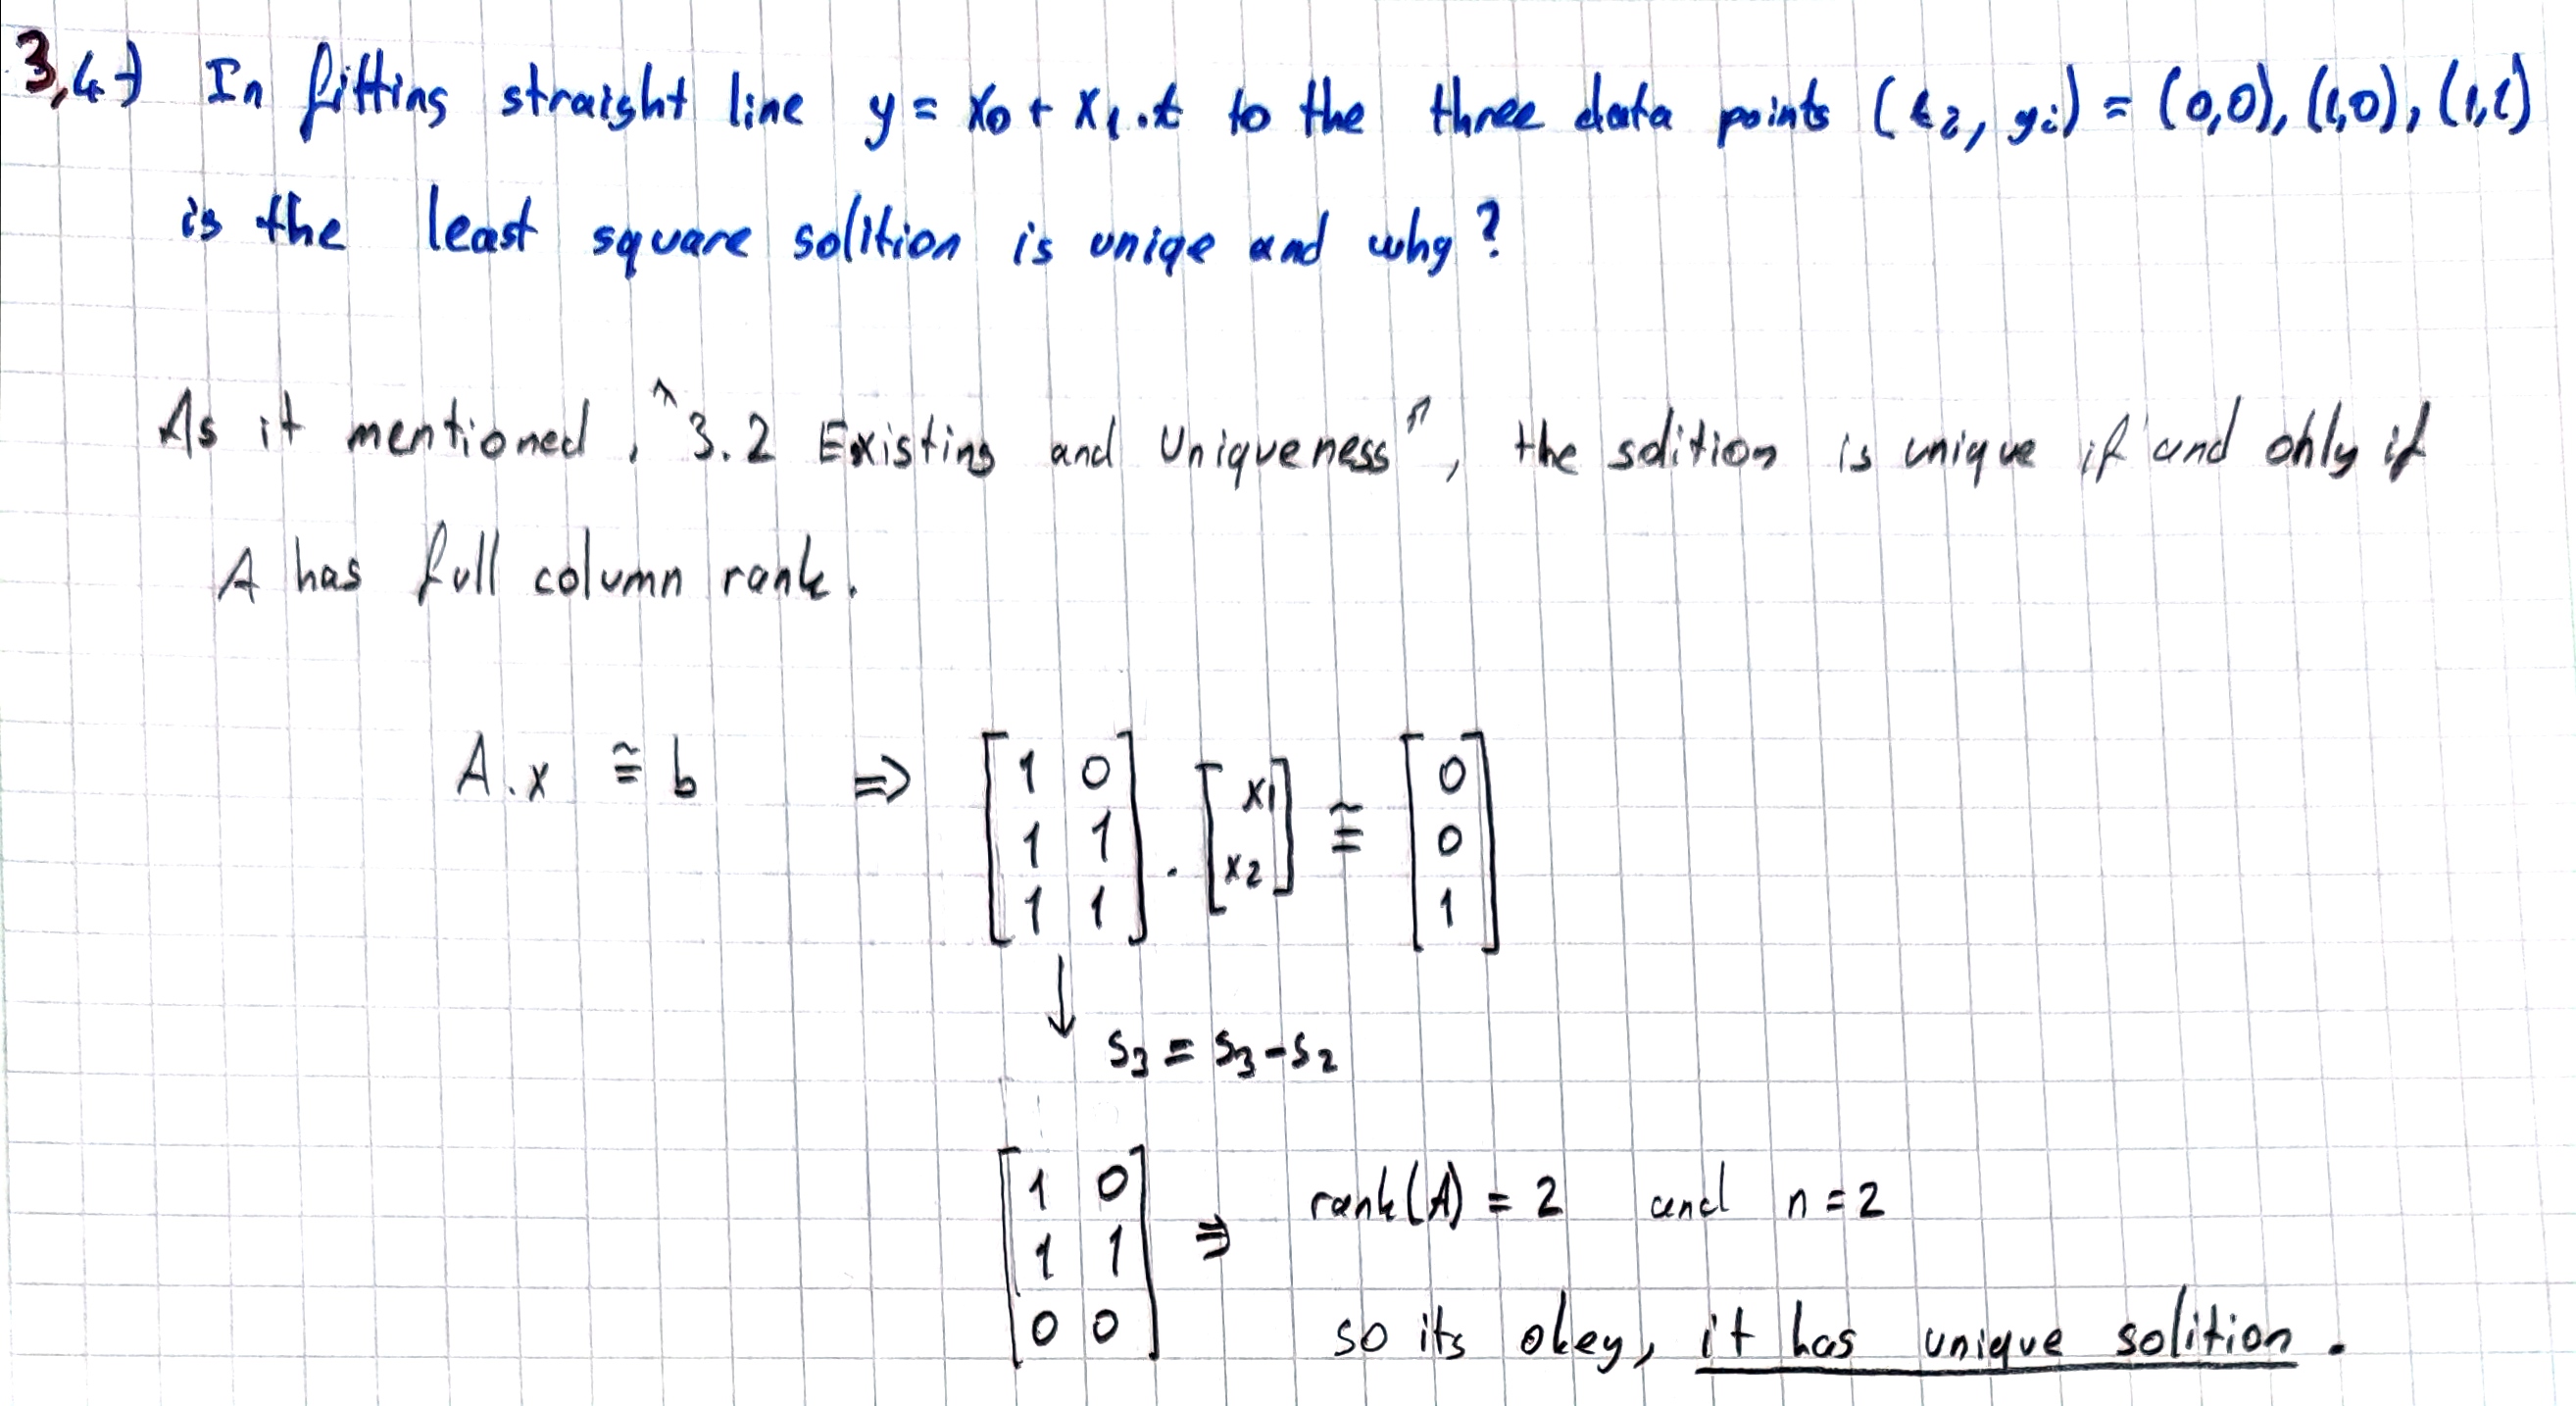 3,4-) In fitting straight line y = x0 + x1.t to the three data points (ti, yi) = (0,0), (1,0), (1,1)
is the least square solition is uniqe and why?
As it mentioned, "3.2 Existing and Uniqueness", the solition is unique if and only if
A has full column rank.
A.x ≅ b ⇒ [1 0; 1 1; 1 1] . [x1; x2] ≅ [0; 0; 1]
↓ S3 = S3-S2
[1 0; 1 1; 0 0] ⇒ rank(A) = 2 and n=2
so its okey, it has unique solition.